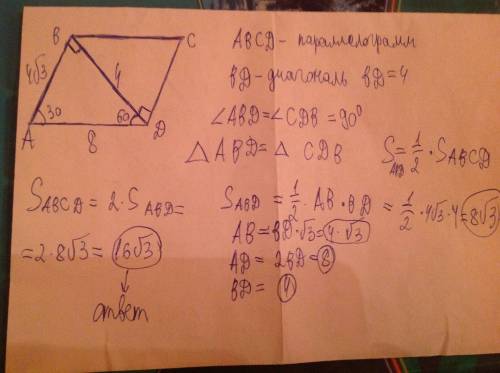 B
C
4√3
4
30
60
A
8
D
ABCD - параллелограмм
BD - диагональ BD = 4
∠ABD = ∠CDB = 90°
△ABD = △CDB
S ABD = 1/2 · S ABCD
S ABCD = 2 · S ABD =
= 2 · 8√3 = 16√3
ответ
S ABD = 1/2 · AB · BD = 1/2 · 4√3 · 4 = 8√3
AB = BD · √3 = 4 · √3
AD = 2BD = 8
BD = 4